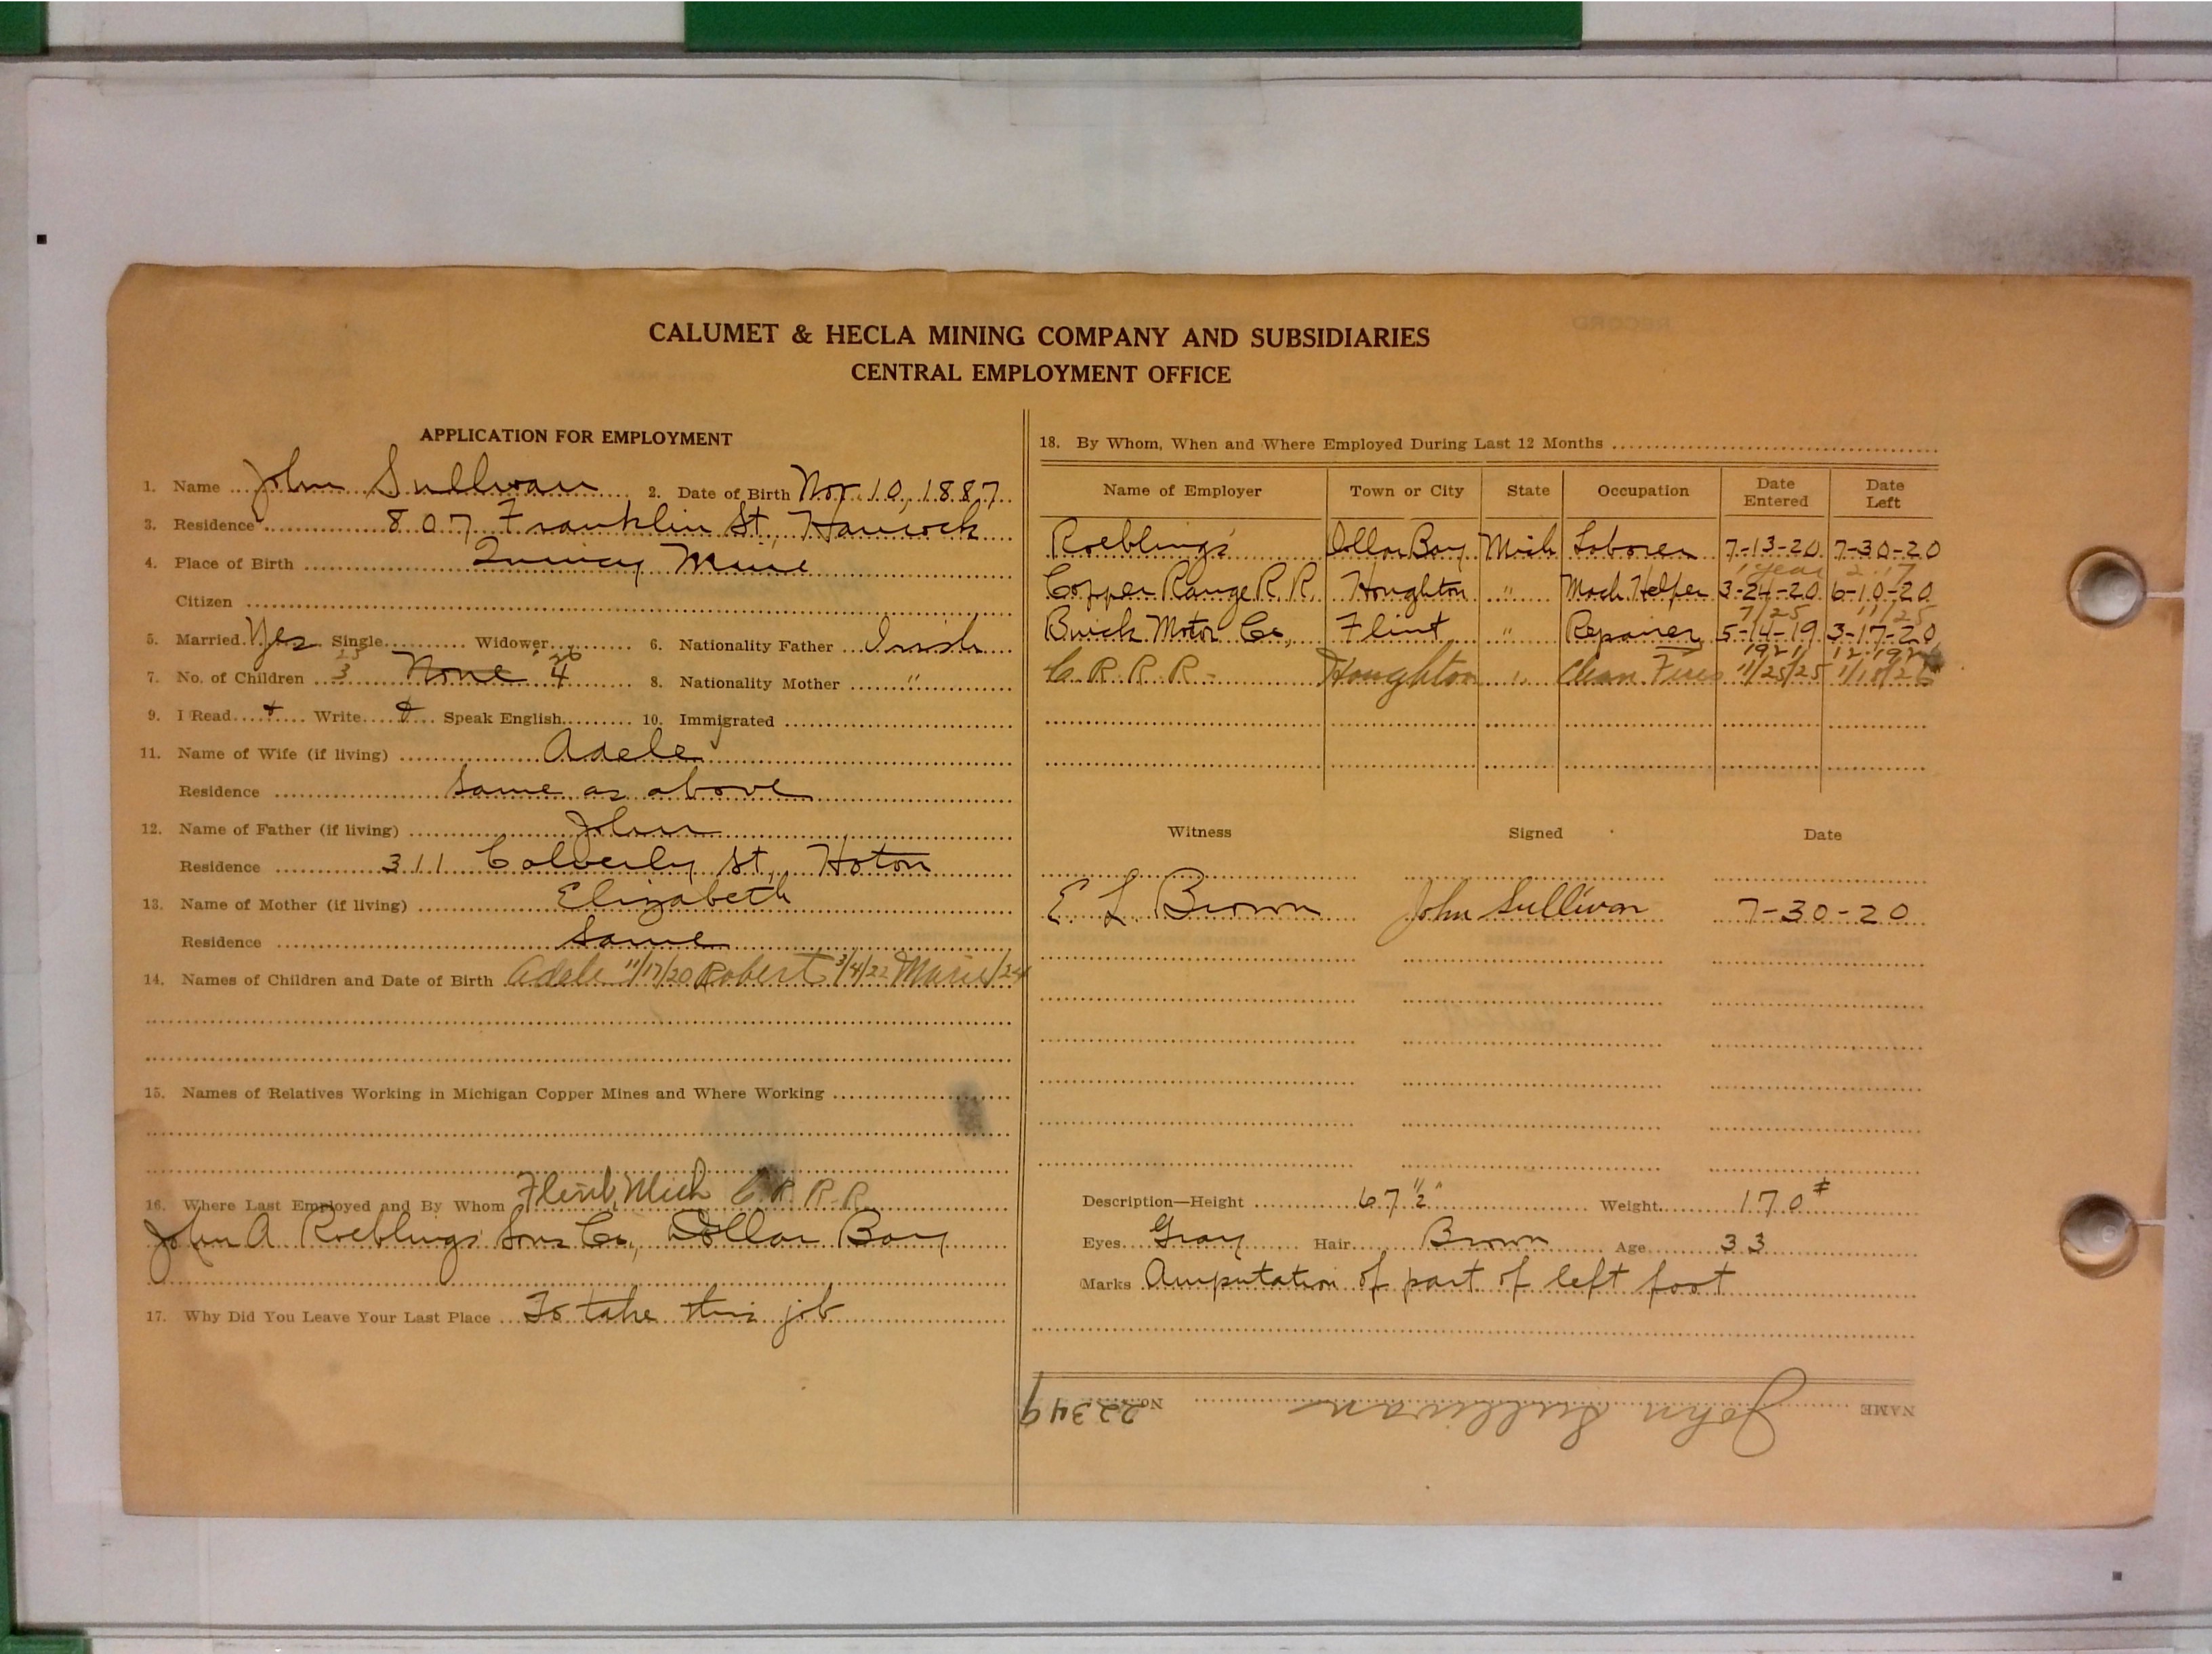 CALUMET & HECLA MINING COMPANY AND SUBSIDIARIES
CENTRAL EMPLOYMENT OFFICE
APPLICATION FOR EMPLOYMENT
1. Name John Sullivan 2. Date of Birth Nov. 10, 1887
3. Residence 807 Franklin St, Hancock
4. Place of Birth Quincy Mine
Citizen
5. Married Yes Single Widower 6. Nationality Father Irish
7. No. of Children 3 25 None 4 26 8. Nationality Mother "
9. I Read Write Speak English 10. Immigrated
11. Name of Wife (if living) Adele
Residence Same as above
12. Name of Father (if living) John
Residence 311 Calverly St, Hoton
13. Name of Mother (if living) Elizabeth
Residence Same
14. Names of Children and Date of Birth Adele 11/17/20 Robert 3/4/22 Marie /24
15. Names of Relatives Working in Michigan Copper Mines and Where Working
16. Where Last Employed and By Whom Flint, Mich C. R. R. R.
John A Roeblings Sons Co., Dollar Bay
17. Why Did You Leave Your Last Place To take this job
18. By Whom, When and Where Employed During Last 12 Months
Name of Employer Town or City State Occupation Date Entered Date Left
Roeblings' Dollar Bay Mich Laborer 7-13-20 7-30-20
1 year
Copper Range R.R. Houghton " Mach. Helper 3-24-20 6-10-20
7/25 11/25
Buick Motor Co., Flint " Repairer 5-14-19 3-17-20
1921
C. R. R. R- Houghton " Clean Fires 11/25/25
Witness Signed Date
E L Brown John Sullivan 7-30-20
Description—Height 67 1/2" Weight 170#
Eyes Gray Hair Brown Age 33
Marks Amputation of part of left foot
NAME John Sullivan No. 22349